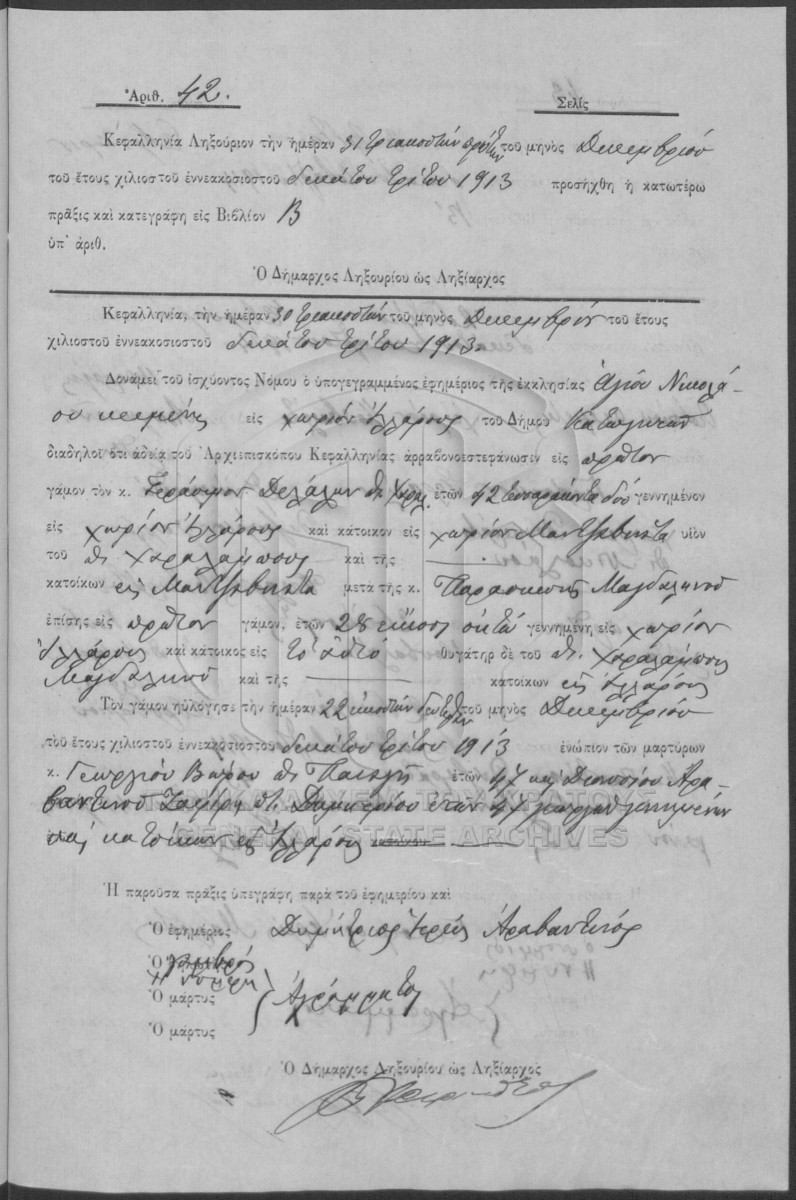 Ἀριθ. 42.
Σελίς
Κεφαλληνία Ληξούριον τὴν ἡμέραν 31 τριακοστὴν πρώτην τοῦ μηνὸς Δεκεμβρίου
τοῦ ἔτους χιλιοστοῦ ἐννεακοσιοστοῦ δεκάτου τρίτου 1913 προσήχθη ἡ κατωτέρω
πρᾶξις καὶ κατεγράφη εἰς Βιβλίον Β
ὑπ' ἀριθ.
Ὁ Δήμαρχος Ληξουρίου ὡς Ληξίαρχος
Κεφαλληνία, τὴν ἡμέραν 30 τριακοστὴν τοῦ μηνὸς Δεκεμβρίου τοῦ ἔτους
χιλιοστοῦ ἐννεακοσιοστοῦ δεκάτου τρίτου 1913.
Δυνάμει τοῦ ἰσχύοντος Νόμου ὁ ὑπογεγραμμένος ἐφημέριος τῆς ἐκκλησίας Ἁγίου Νικολά-
ου κειμένης εἰς χωρίον τοῦ Δήμου
διαδηλοῖ ὅτι ἀδείᾳ τοῦ Ἀρχιεπισκόπου Κεφαλληνίας ἀρραβονοεστεφάνωσεν εἰς πρῶτον
γάμον τὸν κ. Γεράσιμον Δελάλην ἐτῶν 42 τεσσαράκοντα δύο γεννημένον
εἰς χωρίον καὶ κάτοικον εἰς χωρίον υἱὸν
τοῦ Χαραλάμπους καὶ τῆς
κατοίκων εἰς μετὰ τῆς κ. Παρασκευῆς Μαγδαληνοῦ
ἐπίσης εἰς πρῶτον γάμον, ἐτῶν 28 εἴκοσι ὀκτώ γεννημένη εἰς χωρίον
καὶ κάτοικος εἰς τὸ αὐτό θυγάτηρ δὲ τοῦ Χαραλάμπους
Μαγδαληνοῦ καὶ τῆς κατοίκων εἰς
Τὸν γάμον ηὐλόγησε τὴν ἡμέραν 22 εἰκοστὴν δευτέραν τοῦ μηνὸς Δεκεμβρίου
τοῦ ἔτους χιλιοστοῦ ἐννεακοσιοστοῦ δεκάτου τρίτου 1913 ἐνώπιον τῶν μαρτύρων
κ. Γεωργίου ἐτῶν 47 καὶ Διονυσίου Ἀρα-
βαντινοῦ Δημητρίου ἐτῶν 47
καὶ κατοίκων εἰς
GENERAL STATE ARCHIVES
Ἡ παροῦσα πρᾶξις ὑπεγράφη παρὰ τοῦ ἐφημερίου καὶ
Ὁ ἐφημέριος Δημήτριος Ἱερεύς Ἀραβαντινός
Ὁ γαμβρός
Ἡ νύμφη
Ὁ μάρτυς
Ἀγράμματοι
Ὁ μάρτυς
Ὁ Δήμαρχος Ληξουρίου ὡς Ληξίαρχος